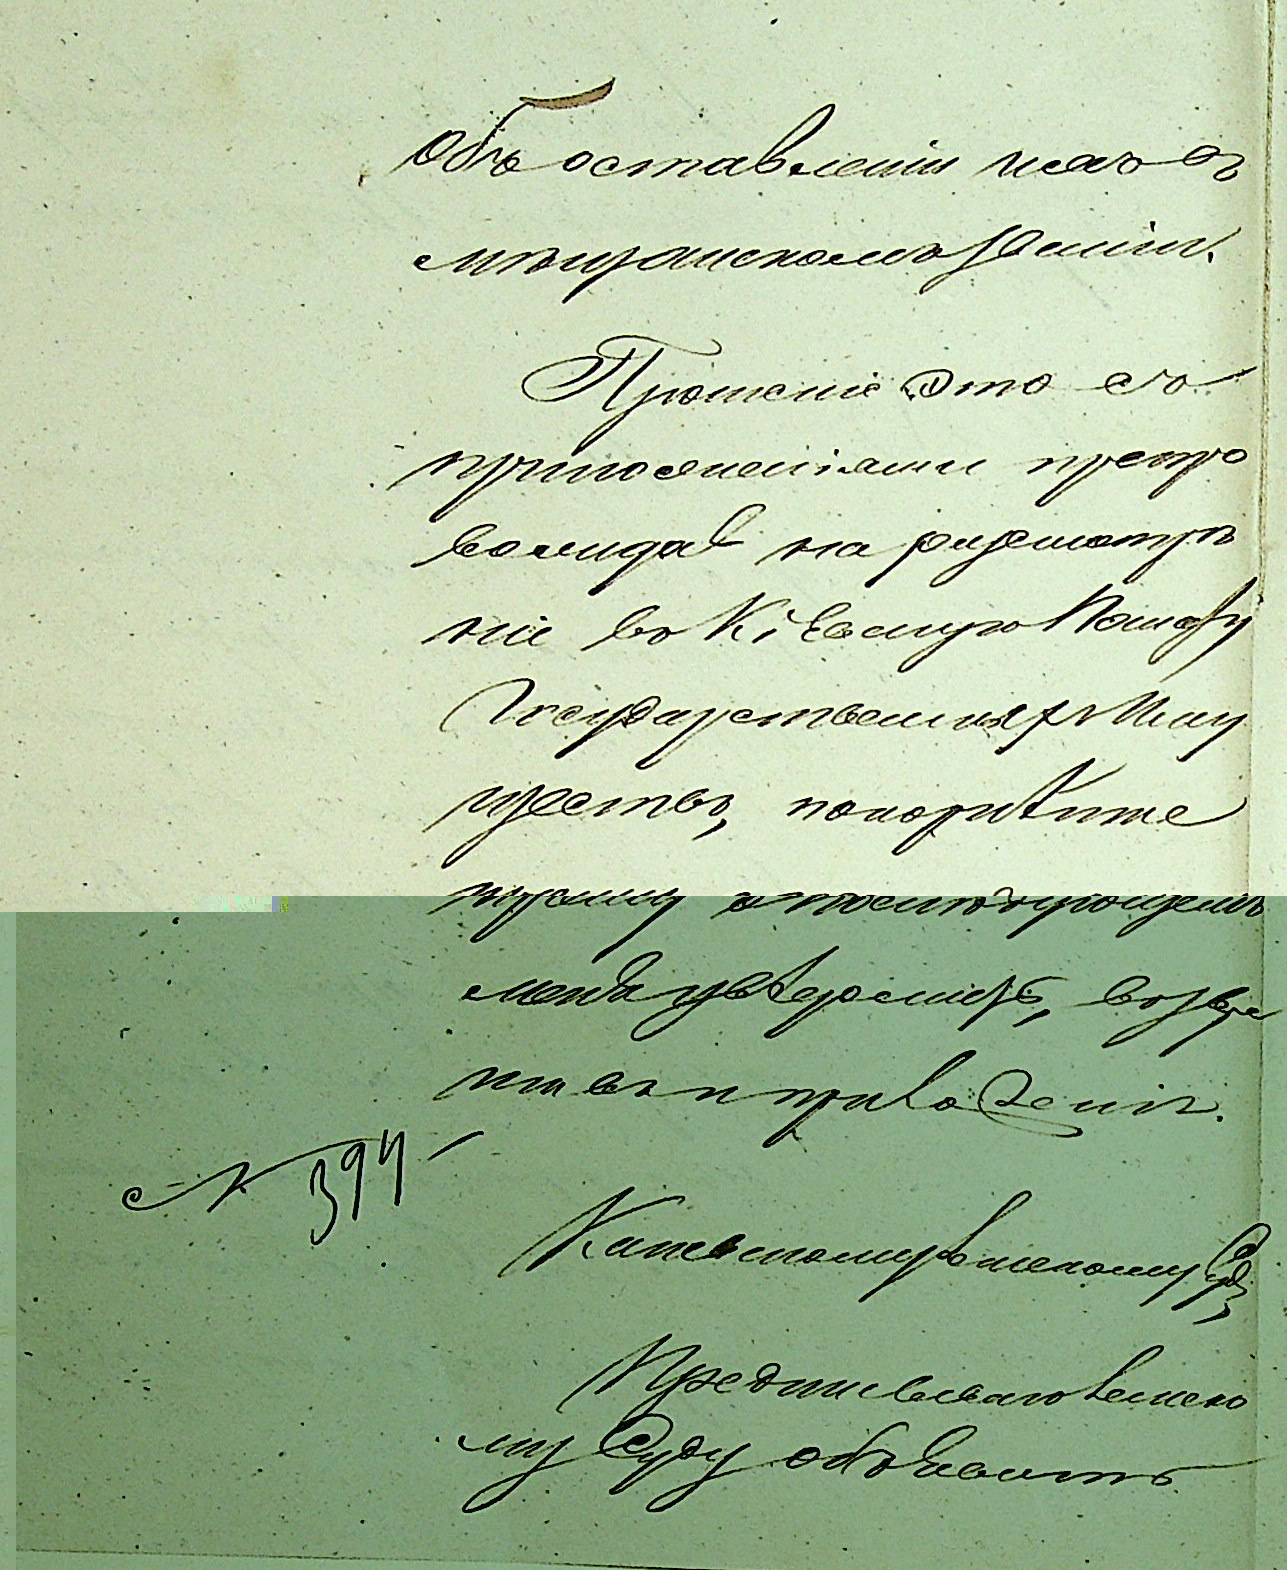 Объ оставленіи ихъ въ
мѣщанскомъ званіи.
Прошеніе это съ
приложеніями препро
вождая на разсмотрѣ
ніе въ Кіевскую Палату
Государственныхъ Иму
ществъ, покорнѣйше
прошу о послѣдующемъ
меня увѣдомить, возвра
тивъ и приложенія.
№ 394
Земскому Суду
Предписываю Земско
му Суду объявить